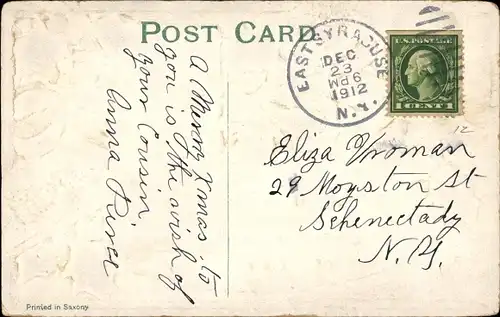 POST CARD
A Merry Xmas to
you is the wish of
your Cousin
Anna River
EAST SYRACUSE
DEC
23
1912
N.Y.
U.S. POSTAGE
1 CENT 1
12
Eliza Vroman
29 Moyston St
Schenectady
N.Y.
Printed in Saxony